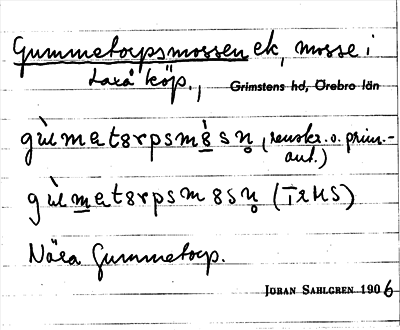 Gummetorpsmossen ek, mosse i
Laxå köp., Grimstens hd, Örebro län
gùmetɜrpsmɜ̀sn̥ (renskr. o. prim.-
ant.)
gùmetɜrpsmɜsn̥ (TrMS)
Nära Gummetorp.
JÖRAN SAHLGREN 1906